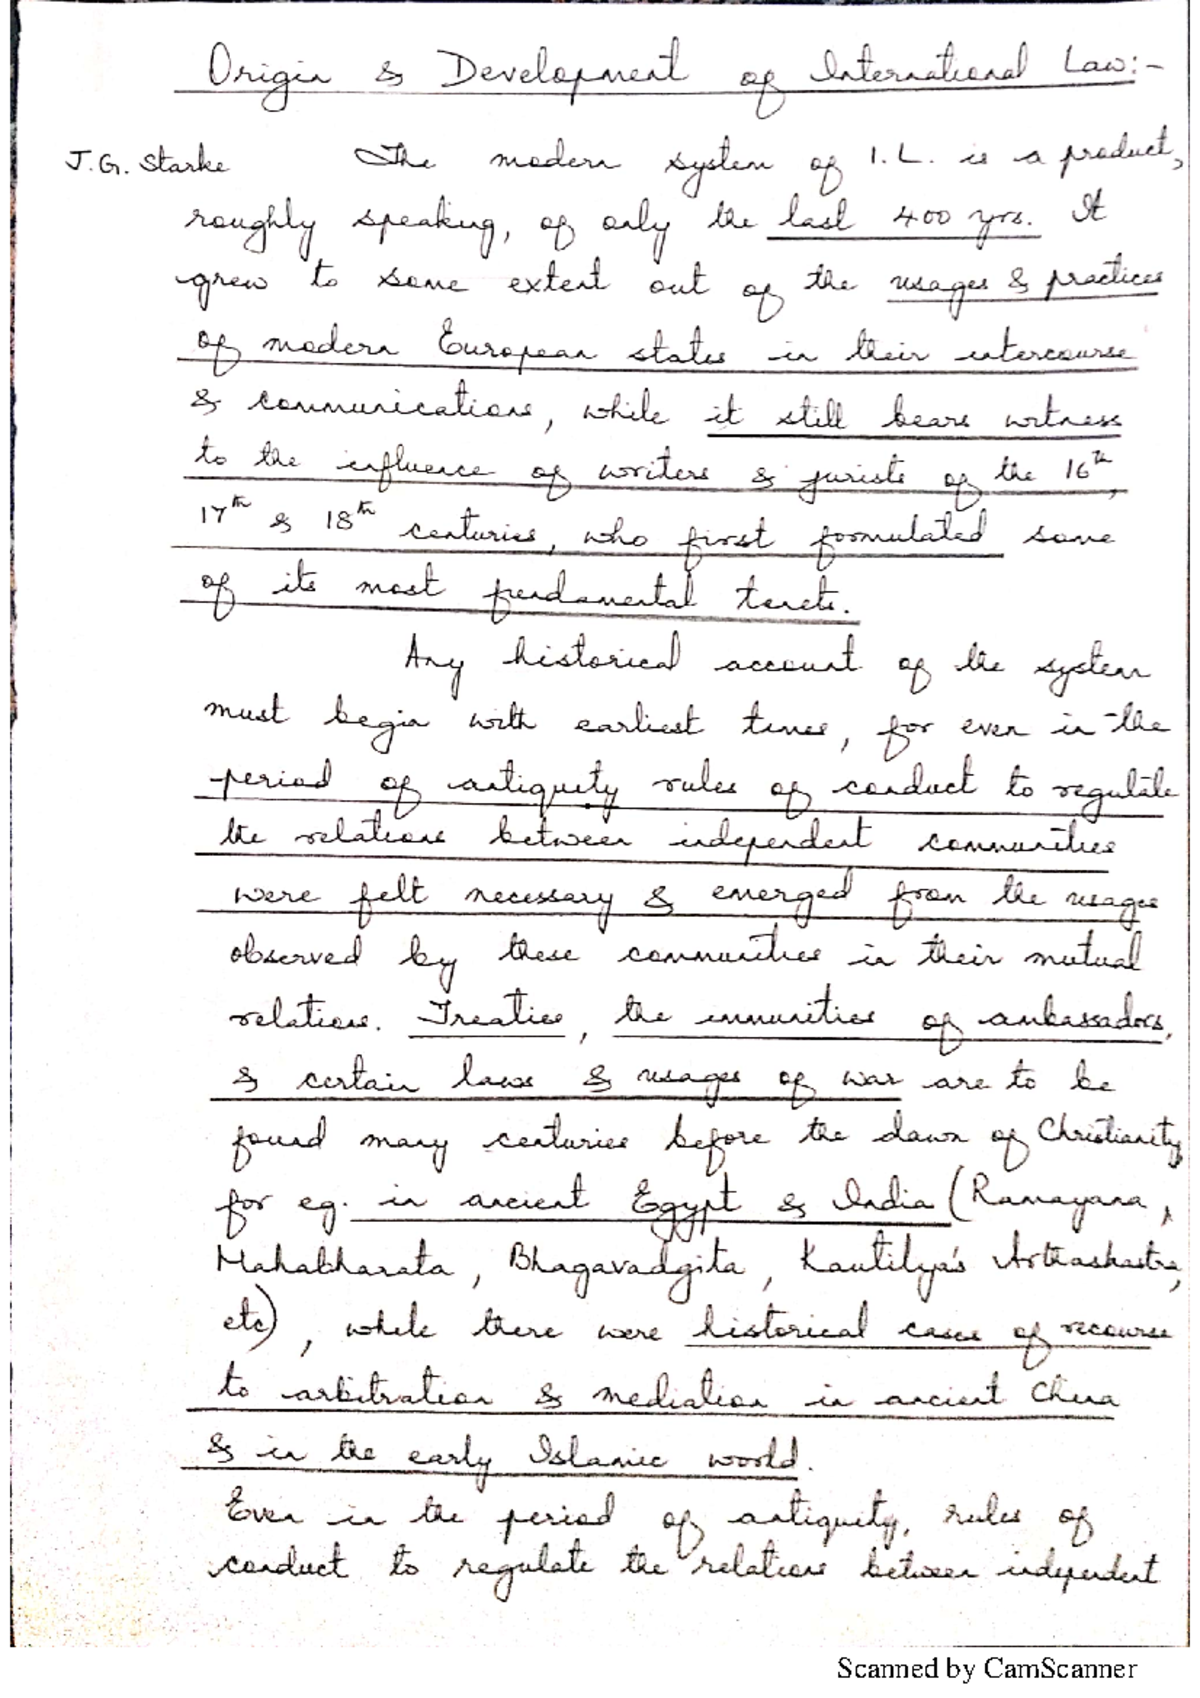 Origin & Development of International Law:-
J.G. Starke The modern system of I.L. is a product,
roughly speaking, of only the last 400 yrs. It
grew to some extent out of the usages & practices
of modern European states in their intercourse
& communications, while it still bears witness
to the influence of writers & jurists of the 16th,
17th & 18th centuries, who first formulated some
of its most fundamental tenets.
Any historical account of the system
must begin with earliest times, for even in the
period of antiquity rules of conduct to regulate
the relations between independent communities
were felt necessary & emerged from the usages
observed by these communities in their mutual
relations. Treaties, the immunities of ambassadors,
& certain laws & usages of war are to be
found many centuries before the dawn of Christianity,
for eg. in ancient Egypt & India (Ramayana,
Mahabharata, Bhagavadgita, Kautilya's Arthashastra,
etc), while there were historical cases of recourse
to arbitration & mediation in ancient China
& in the early Islamic world.
Even in the period of antiquity, rules of
conduct to regulate the relations between independent
Scanned by CamScanner